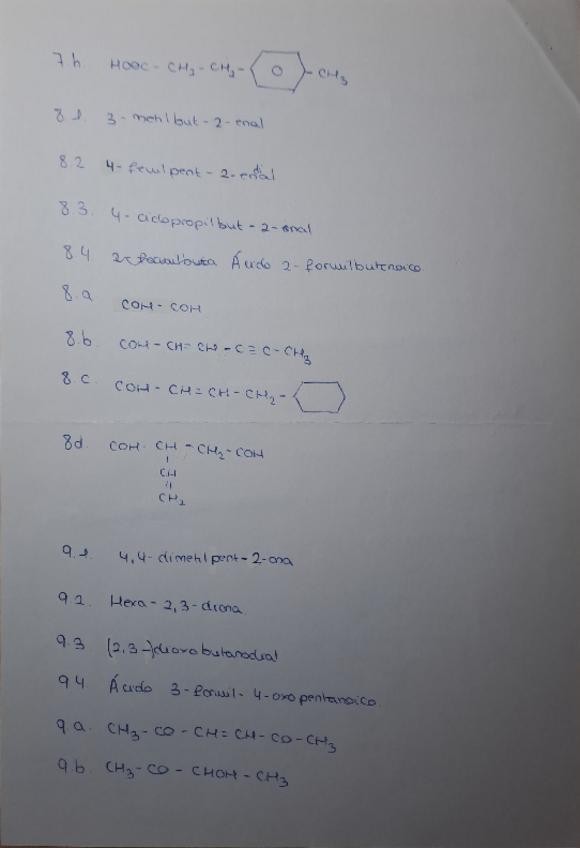 7h. HOOC - CH2 - CH2 - - CH3
8.1. 3-metilbut-2-enal
8.2 4-fenilpent-2-endial
8.3. 4-ciclopropilbut-2-enal
8.4 Ácido 2-formilbutenoico
8.a COH - COH
8.b. COH - CH = CH - C ≡ C - CH3
8.c. COH - CH = CH - CH2 -
8d. COH - CH - CH2 - COH
CH
CH2
9.1. 4,4-dimetilpent-2-ona
9.2. Hexa-2,3-diona
9.3 (2,3-)dioxobutanodial
9.4 Ácido 3-formil-4-oxopentanoico.
9a. CH3 - CO - CH = CH - CO - CH3
9.b. CH3 - CO - CHOH - CH3